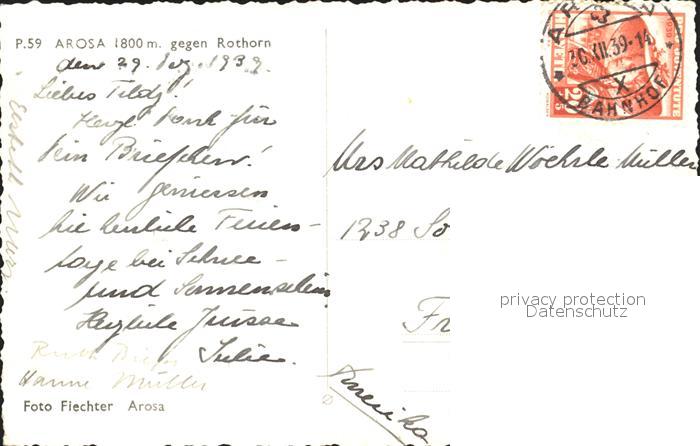 P.59 AROSA 1800 m. gegen Rothorn
den 29. Dez. 1939.
Liebes Tildy!
Herzl. Dank für
Dein Briefchen!
Wir geniessen
die herrliche Ferien-
tage bei Schnee -
und Sonnenschein
Herzliche Grüsse
Julie.
Ruth
Hanne Müller
Foto Fiechter Arosa
30.XII.39-14
X
BAHNHOF
Mrs Mathilde Woehrle-Müller
1238 So
Fr
Amerika
privacy protection
Datenschutz